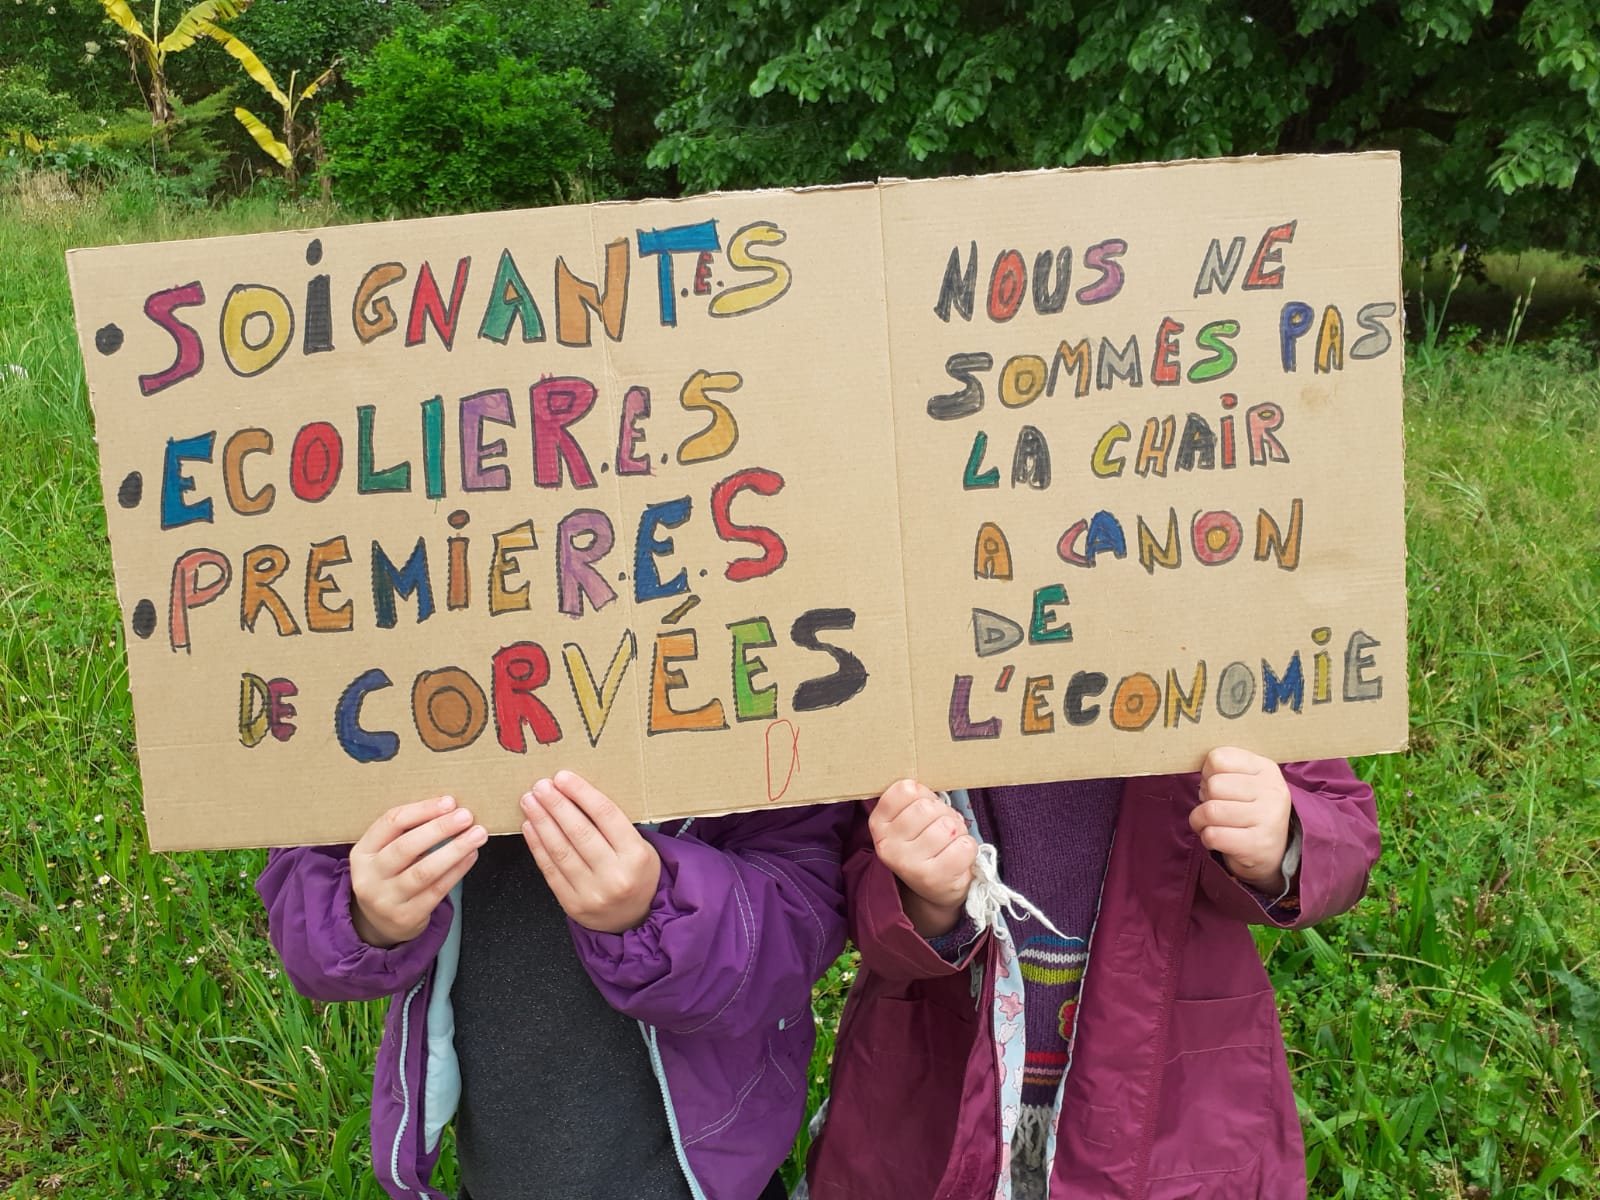 • SOIGNANT.E.S
• ECOLIER.E.S
• PREMIER.E.S
DE CORVÉES
NOUS NE
SOMMES PAS
LA CHAIR
A CANON
DE
L'ECONOMIE